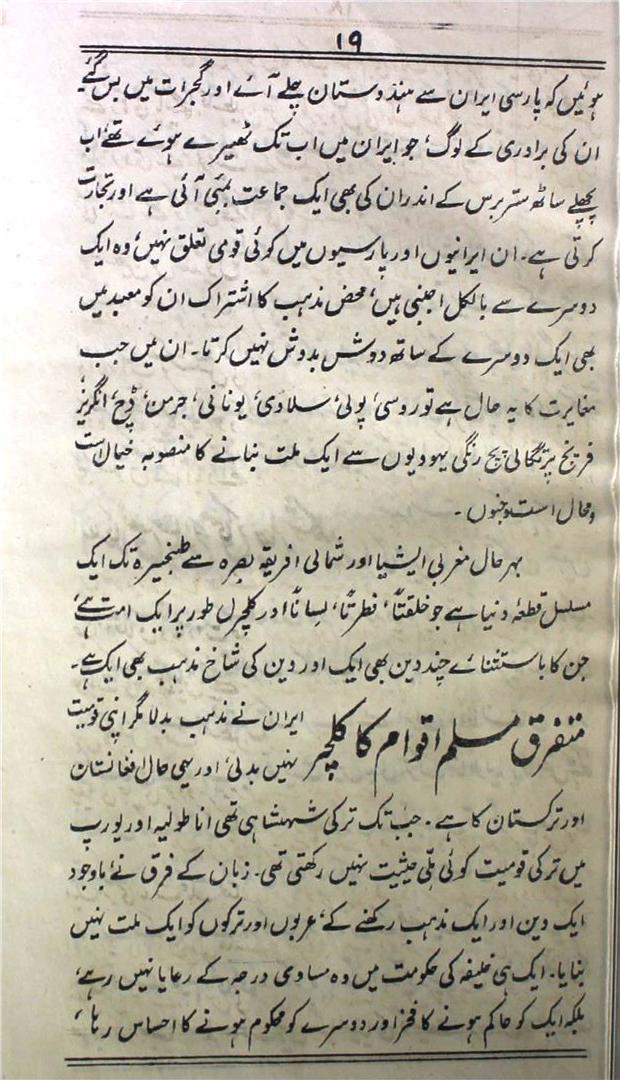 ۱۹
ہوئیں کہ پارسی ایران سے ہندوستان چلے آئے اور گجرات میں بس گئے
ان کی برادری کے لوگ، جو ایران میں اب تک ٹھیرے ہوئے تھے، اب
پچھلے ساٹھ ستر برس کے اندر ان کی بھی ایک جماعت بمبئی آئی ہے اور تجارت
کرتی ہے۔ ان ایرانیوں اور پارسیوں میں کوئی قومی تعلق نہیں، وہ ایک
دوسرے سے بالکل اجنبی ہیں، محض مذہب کا اشتراک ان کو معبد میں
بھی ایک دوسرے کے ساتھ دوش بدوش نہیں کرتا۔ ان میں جب
مغایرت کا یہ حال ہے تو روسی، پولی، سلاوی، یونانی، جرمن، ڈچ، انگریز،
فرنچ پرتگالی پچ رنگی یہودیوں سے ایک ملت بنانے کا منصوبہ خیال است
و محال است و جنوں۔
بہر حال مغربی ایشیا اور شمالی افریقہ بصرہ سے طنجیرہ تک ایک
مسلسل قطعۂ دنیا ہے جو خلقتاً، فطرتاً، لساناً اور کلچرل طور پر ایک امت ہے،
جن کا باستثنائے چند دین بھی ایک اور دین کی شاخ مذہب بھی ایک ہے۔
متفرق مسلم اقوام کا کلچر
ایران نے مذہب بدلا مگر اپنی قومیت
نہیں بدلی، اور یہی حال افغانستان
اور ترکستان کا ہے۔ جب تک ترکی شہنشاہی تھی اناطولیہ اور یورپ
میں ترکی قومیت کوئی ملّی حیثیت نہیں رکھتی تھی۔ زبان کے فرق نے، باوجود
ایک دین اور ایک مذہب رکھنے کے، عربوں اور ترکوں کو ایک ملت نہیں
بنایا۔ ایک ہی خلیفہ کی حکومت میں وہ مساوی درجہ کے رعایا نہیں رہے،
بلکہ ایک کو حاکم ہونے کا فخر اور دوسرے کو محکوم ہونے کا احساس رہا،